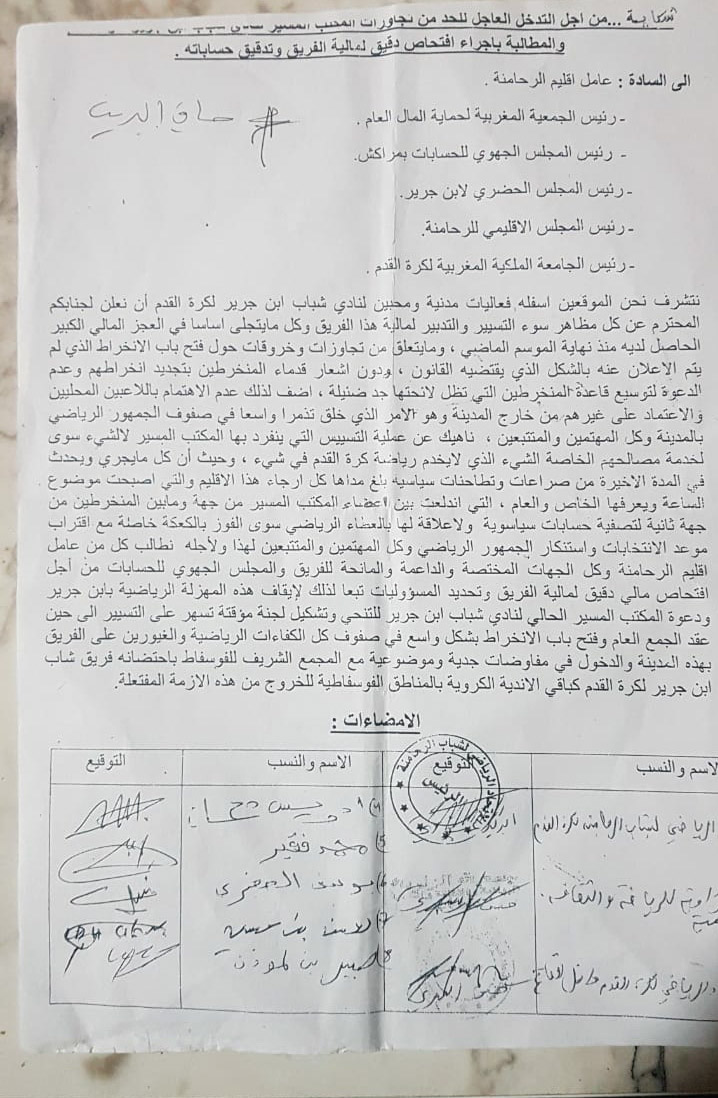 شكاية ...من اجل التدخل العاجل للحد من تجاوزات المكتب المسير
والمطالبة باجراء افتحاص دقيق لمالية الفريق وتدقيق حساباته .
الى السادة : عامل اقليم الرحامنة .
- رئيس الجمعية المغربية لحماية المال العام .
- رئيس المجلس الجهوي للحسابات بمراكش.
- رئيس المجلس الحضري لابن جرير.
- رئيس المجلس الاقليمي للرحامنة.
- رئيس الجامعة الملكية المغربية لكرة القدم .
نتشرف نحن الموقعين اسفله فعاليات مدنية ومحبين لنادي شباب ابن جرير لكرة القدم أن نعلن لجنابكم
المحترم عن كل مظاهر سوء التسيير والتدبير لمالية هذا الفريق وكل مايتجلى اساسا في العجز المالي الكبير
الحاصل لديه منذ نهاية الموسم الماضي ، ومايتعلق من تجاوزات وخروقات حول فتح باب الانخراط الذي لم
يتم الاعلان عنه بالشكل الذي يقتضيه القانون ، ودون اشعار قدماء المنخرطين بتجديد انخراطهم وعدم
الدعوة لتوسيع قاعدة المنخرطين التي تظل لائحتها جد ضئيلة ، اضف لذلك عدم الاهتمام باللاعبين المحليين
والاعتماد على غيرهم من خارج المدينة وهو الامر الذي خلق تذمرا واسعا في صفوف الجمهور الرياضي
بالمدينة وكل المهتمين والمتتبعين ، ناهيك عن عملية التسييس التي ينفرد بها المكتب المسير لالشيء سوى
لخدمة مصالحهم الخاصة الشيء الذي لايخدم رياضة كرة القدم في شيء ، وحيث أن كل مايجري ويحدث
في المدة الاخيرة من صراعات وتطاحنات سياسية بلغ مداها كل ارجاء هذا الاقليم والتي اصبحت موضوع
الساعة ويعرفها الخاص والعام ، التي اندلعت بين اعضاء المكتب المسير من جهة ومابين المنخرطين من
جهة ثانية لتصفية حسابات سياسوية ولاعلاقة لها بالعطاء الرياضي سوى الفوز بالكعكة خاصة مع اقتراب
موعد الانتخابات واستنكار الجمهور الرياضي وكل المهتمين والمتتبعين لهذا ولأجله نطالب كل من عامل
اقليم الرحامنة وكل الجهات المختصة والداعمة والمانحة للفريق والمجلس الجهوي للحسابات من أجل
افتحاص مالي دقيق لمالية الفريق وتحديد المسؤوليات تبعا لذلك لإيقاف هذه المهزلة الرياضية بابن جرير
ودعوة المكتب المسير الحالي لنادي شباب ابن جرير للتنحي وتشكيل لجنة مؤقتة تسهر على التسيير الى حين
عقد الجمع العام وفتح باب الانخراط بشكل واسع في صفوف كل الكفاءات الرياضية والغيورين على الفريق
بهذه المدينة والدخول في مفاوضات جدية وموضوعية مع المجمع الشريف للفوسفاط باحتضانه فريق شاب
ابن جرير لكرة القدم كباقي الاندية الكروية بالمناطق الفوسفاطية للخروج من هذه الازمة المفتعلة.
الامضاءات :
الاسم والنسب التوقيع الاسم والنسب التوقيع
الرياضي لشباب الرحامنة لكرة القدم
الرئيس
محمد فقير
للرياضة والثقافة